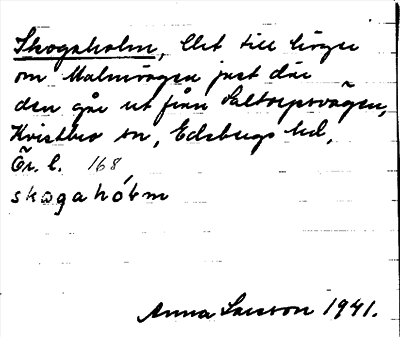 Skogaholm, Ulet till höger
om Malmvägen just där
den går ut från Saltorpsvägen,
Kvistbro sn, Edsbergs hd,
Ör. l. 168
skogahólm
Anna Larsson 1941.